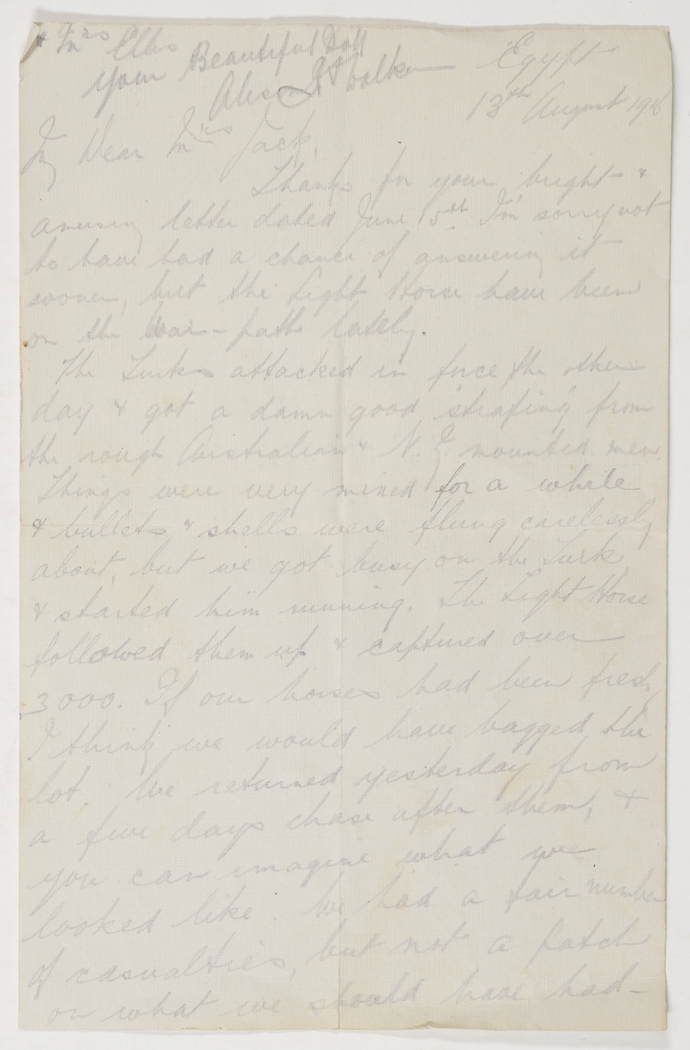 & Mrs Ellis
your Beautiful Doll
Alison H Walker
Egypt
13th August 1916
My Dear Mrs Jack,
Thanks for your bright &
amusing letter dated June 15th. I'm sorry not
to have had a chance of answering it
sooner, but the Light Horse have been
on the War-path lately.
The Turks attacked in force the other
day & got a damn good "strafing" from
the rough Australian & N.Z. mounted men.
Things were very mixed for a while
& bullets & shells were flung carelessly
about, but we got busy on the Turk
& started him running. The Light Horse
followed them up & captured over
3000. If our horses had been fresh,
I think we would have bagged the
lot. We returned yesterday from
a five days chase after them, &
you can imagine what we
looked like. We had a fair number
of casualties, but not a patch
on what we should have had -